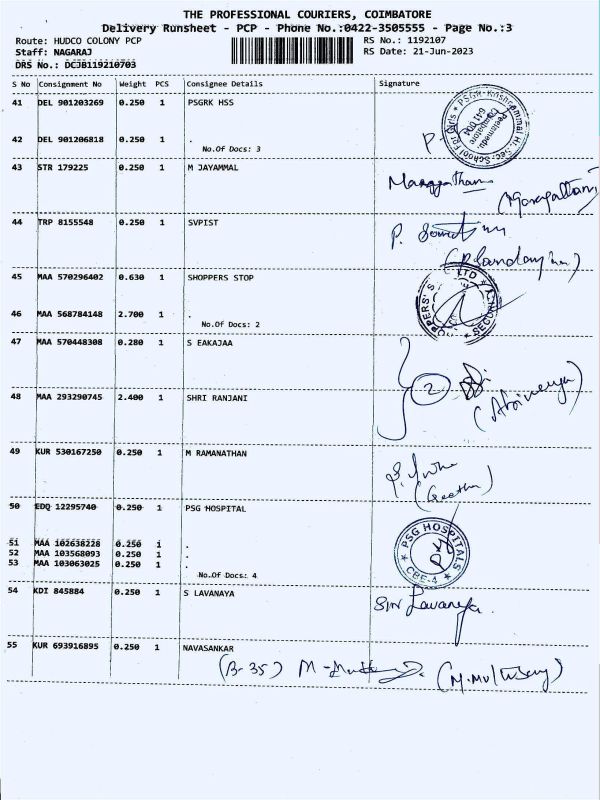 THE PROFESSIONAL COURIERS, COIMBATORE
Delivery Runsheet - PCP - Phone No.:0422-3505555 - Page No.:3
Route: HUDCO COLONY PCP
RS No.: 1192107
Staff: NAGARAJ
RS Date: 21-Jun-2023
DRS No.: DCJB119210703
S No Consignment No Weight PCS Consignee Details Signature
41 DEL 901203269 0.250 1 PSGRK HSS
42 DEL 901206818 0.250 1 .
No.Of Docs: 3
43 STR 179225 0.250 1 M JAYAMMAL
44 TRP 8155548 0.250 1 SVPIST
45 MAA 570296402 0.630 1 SHOPPERS STOP
46 MAA 568784148 2.700 1 .
No.Of Docs: 2
47 MAA 570448308 0.280 1 S EAKAJAA
2
48 MAA 293290745 2.400 1 SHRI RANJANI
49 KUR 530167250 0.250 1 M RAMANATHAN
(Geetha)
50 EDQ 12295740 0.250 1 PSG HOSPITAL
PSG HOSPITALS
CBE-4
51 MAA 102638228 0.250 1 .
52 MAA 103568093 0.250 1 .
53 MAA 103063025 0.250 1 .
No.Of Docs: 4
54 KDI 845884 0.250 1 S LAVANAYA
Lavanya
55 KUR 693916895 0.250 1 NAVASANKAR
(B-35)